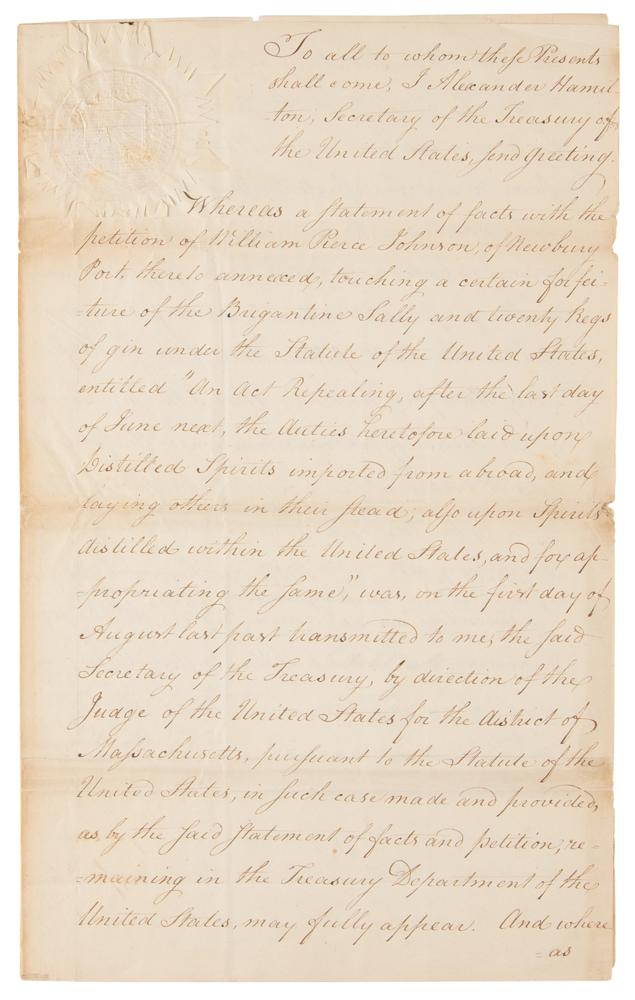 To all to whom these Presents
shall come, I Alexander Hamil-
-ton, Secretary of the Treasury of
the United States, send Greeting.
Whereas a statement of facts with the
petition of William Pierce Johnson, of Newbury
Port, thereto annexed, touching a certain forfei-
-ture of the Brigantine Sally and twenty Kegs
of gin under the Statute of the United States,
entitled "An Act Repealing, after the last day
of June next, the Duties heretofore laid upon
Distilled Spirits imported from abroad, and
laying others in their stead; also upon Spirits
distilled within the United States, and for ap-
-propriating the same", was, on the first day of
August last past transmitted to me, the said
Secretary of the Treasury, by direction of the
Judge of the United States for the district of
Massachusetts, pursuant to the Statute of the
United States, in such case made and provided,
as by the said statement of facts and petition, re-
-maining in the Treasury Department of the
United States, may fully appear. And where
=as